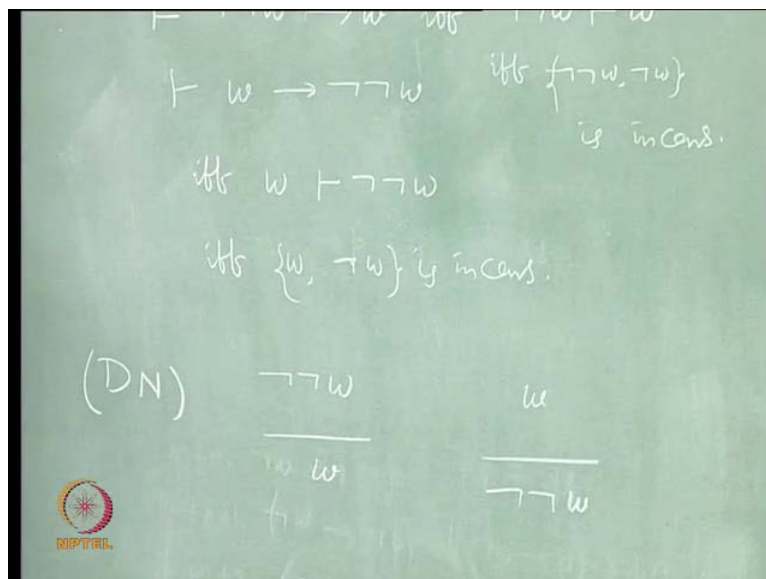 ⊢ ¬¬w → w iff ¬¬w ⊢ w
⊢ w → ¬¬w iff {¬¬w, ¬w}
is incons.
iff w ⊢ ¬¬w
iff {w, ¬w} is incons.
(DN) ¬¬w w
w ¬¬w
NPTEL